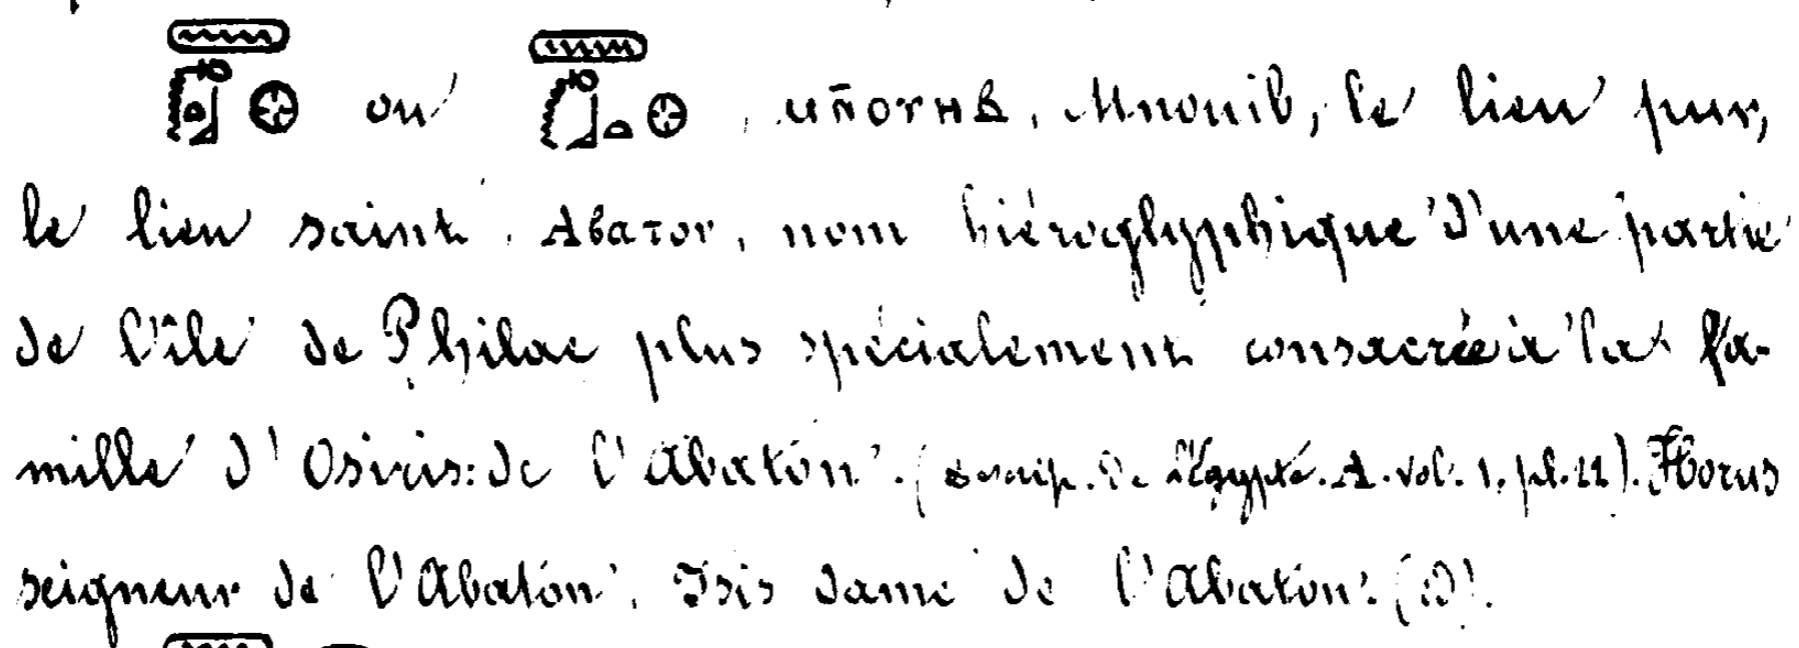 ou , ⲙⲡⲟⲩⲏⲃ, Mnouib, le lieu pur,
le lieu saint, Αβατον, nom hiéroglyphique d'une partie
de l'île de Philae plus spécialement consacrée à la fa-
mille d'Osiris: de l'Abaton. (Descrip. de l'Égypte. A. vol. 1, pl. 22). Horus
seigneur de l'Abaton, Isis dame de l'Abaton. (D).